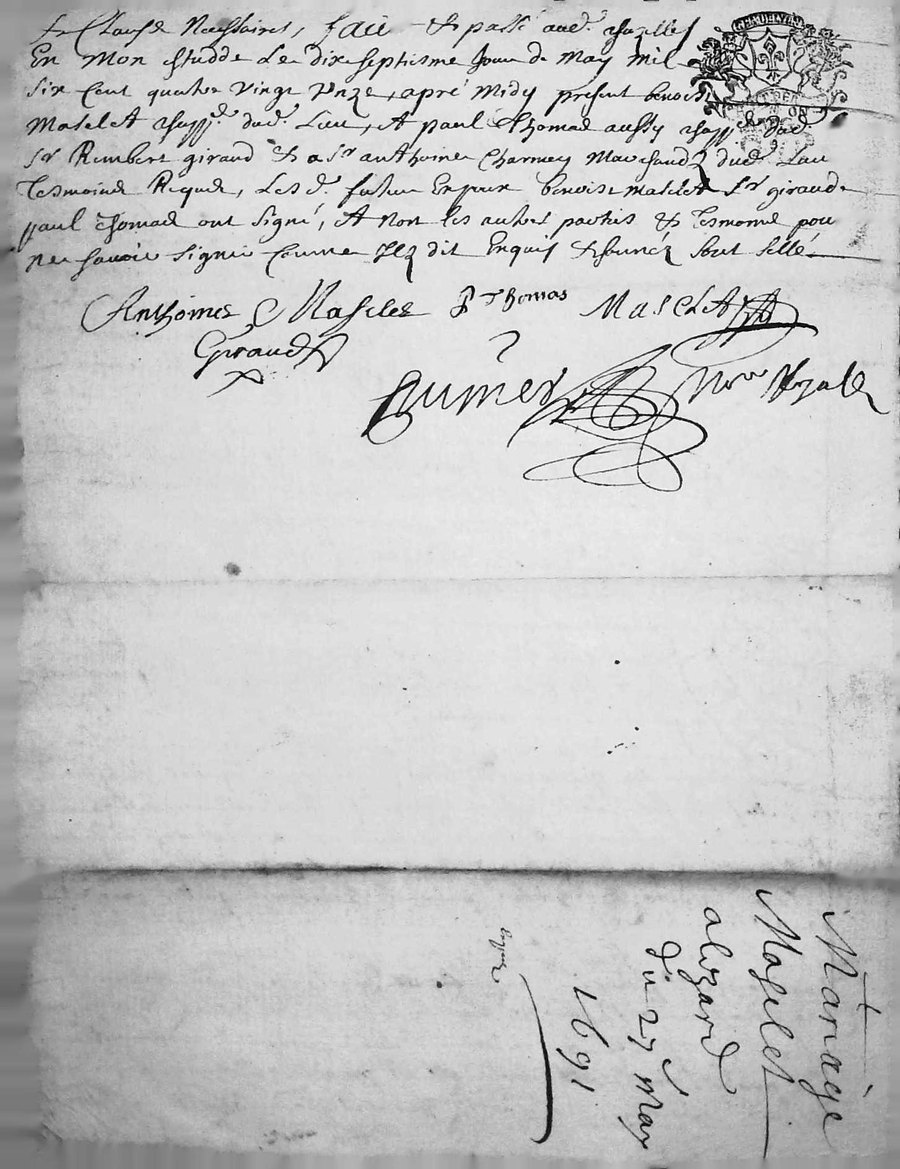 & Clause Necessaires, faict & passé aud. chazelles
En Mon Studde Le dix septiesme Jour de May mil
six Cent quatre vingt Unze, apré Midy present benois
Maselet dud. Lieu, Et paul Thomas aussy
Sr Rembert giraud & a Sr anthoine Charmey Marchandz dud. Lieu
Tesmoins Requis, Les d. futur Espoux benoist maselet Sr giraud
paul Thomas ont signé, Et Non les autres parties & Tesmoins pou
ne savoir signer Comme Ilz dit Enquis & Sont sellé
Anthoines Maselet P Thomas MaseLet
Giraud
Not. Royale
+
Mariage
Maselet
alozard
du 27 may
1691